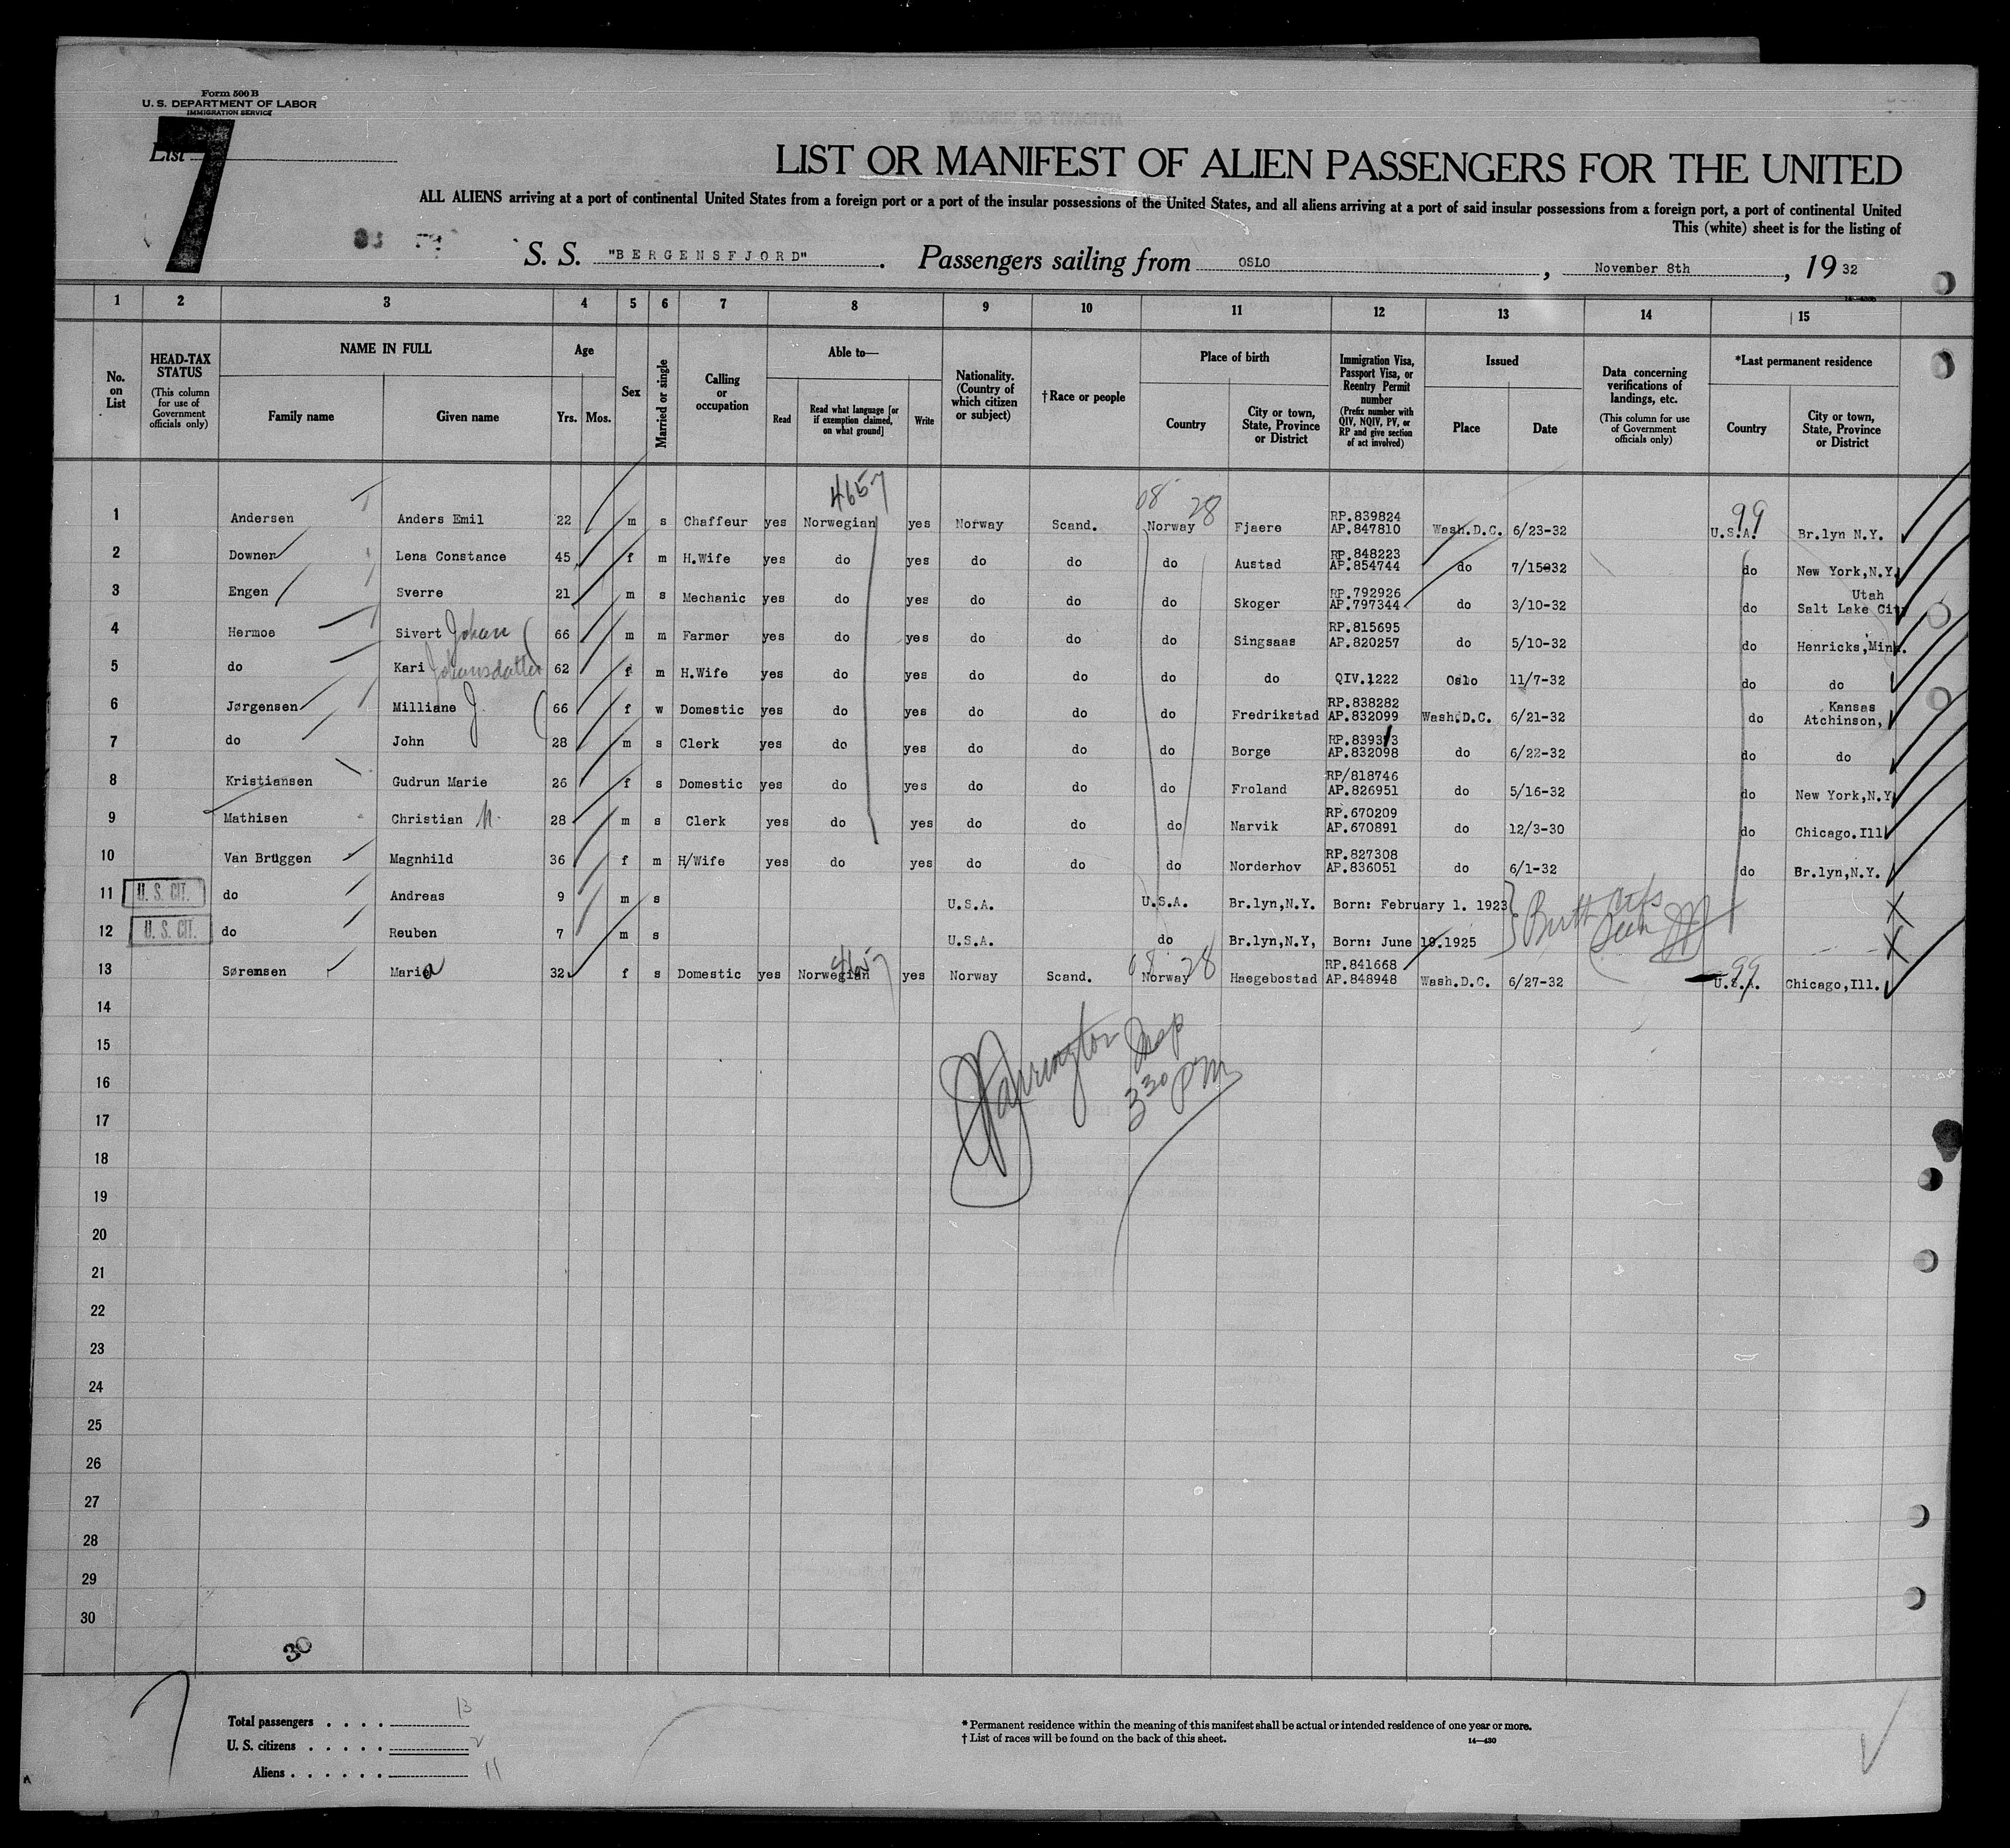 Form 500 B
U. S. DEPARTMENT OF LABOR
IMMIGRATION SERVICE
List 7
LIST OR MANIFEST OF ALIEN PASSENGERS FOR THE UNITED
ALL ALIENS arriving at a port of continental United States from a foreign port or a port of the insular possessions of the United States, and all aliens arriving at a port of said insular possessions from a foreign port, a port of continental United
This (white) sheet is for the listing of
S. S. "BERGENSFJORD" . Passengers sailing from OSLO , November 8th , 19 32
1 2 3 4 5 6 7 8 9 10 11 12 13 14 15
No. on List
HEAD-TAX STATUS (This column for use of Government officials only)
NAME IN FULL Family name Given name
Age Yrs. Mos.
Sex
Married or single
Calling or occupation
Able to— Read Read what language [or if exemption claimed, on what ground] Write
Nationality. (Country of which citizen or subject)
†Race or people
Place of birth Country City or town, State, Province or District
Immigration Visa, Passport Visa, or Reentry Permit number (Prefix number with QIV, NQIV, PV, or RP and give section of act involved)
Issued Place Date
Data concerning verifications of landings, etc. (This column for use of Government officials only)
*Last permanent residence Country City or town, State, Province or District
4657 08 28 99
1 Andersen Anders Emil 22 m s Chaffeur yes Norwegian yes Norway Scand. Norway Fjaere RP.839824 AP.847810 Wash.D.C. 6/23-32 U.S.A. Br.lyn N.Y.
2 Downer Lena Constance 45 f m H.Wife yes do yes do do do Austad RP.848223 AP.854744 do 7/15-32 do New York,N.Y.
3 Engen Sverre 21 m s Mechanic yes do yes do do do Skoger RP.792926 AP.797344 do 3/10-32 do Utah Salt Lake City
4 Hermoe Sivert Johan 66 m m Farmer yes do yes do do do Singsaas RP.815695 AP.820257 do 5/10-32 do Henricks,Minn.
5 do Kari Johansdatter 62 f m H.Wife yes do yes do do do do QIV.1222 Oslo 11/7-32 do do
6 Jørgensen Milliane J. 66 f w Domestic yes do yes do do do Fredrikstad RP.838282 AP.832099 Wash.D.C. 6/21-32 do Kansas Atchinson,
7 do John 28 m s Clerk yes do yes do do do Borge RP.839313 AP.832098 do 6/22-32 do do
8 Kristiansen Gudrun Marie 26 f s Domestic yes do yes do do do Froland RP/818746 AP.826951 do 5/16-32 do New York,N.Y
9 Mathisen Christian N. 28 m s Clerk yes do yes do do do Narvik RP.670209 AP.670891 do 12/3-30 do Chicago.Ill
10 Van Brüggen Magnhild 36 f m H/Wife yes do yes do do do Norderhov RP.827308 AP.836051 do 6/1-32 do Br.lyn,N.Y.
11 U. S. CIT. do Andreas 9 m s U.S.A. U.S.A. Br.lyn,N.Y. Born: February 1. 1923 Birth ctfs
12 U. S. CIT. do Reuben 7 m s U.S.A. do Br.lyn,N.Y, Born: June 19.1925 seen
4657 08 28 99
13 Sørensen Maria 32 f s Domestic yes Norwegian yes Norway Scand. Norway Haegebostad RP.841668 AP.848948 Wash.D.C. 6/27-32 U.S.A. Chicago,Ill.
14
15
Harrington Insp
16
3 30 PM
17
18
19
20
21
22
23
24
25
26
27
28
29
30
30
Total passengers . . . . 13
U. S. citizens . . . . . 2
Aliens . . . . . . 11
* Permanent residence within the meaning of this manifest shall be actual or intended residence of one year or more.
† List of races will be found on the back of this sheet.
14—430